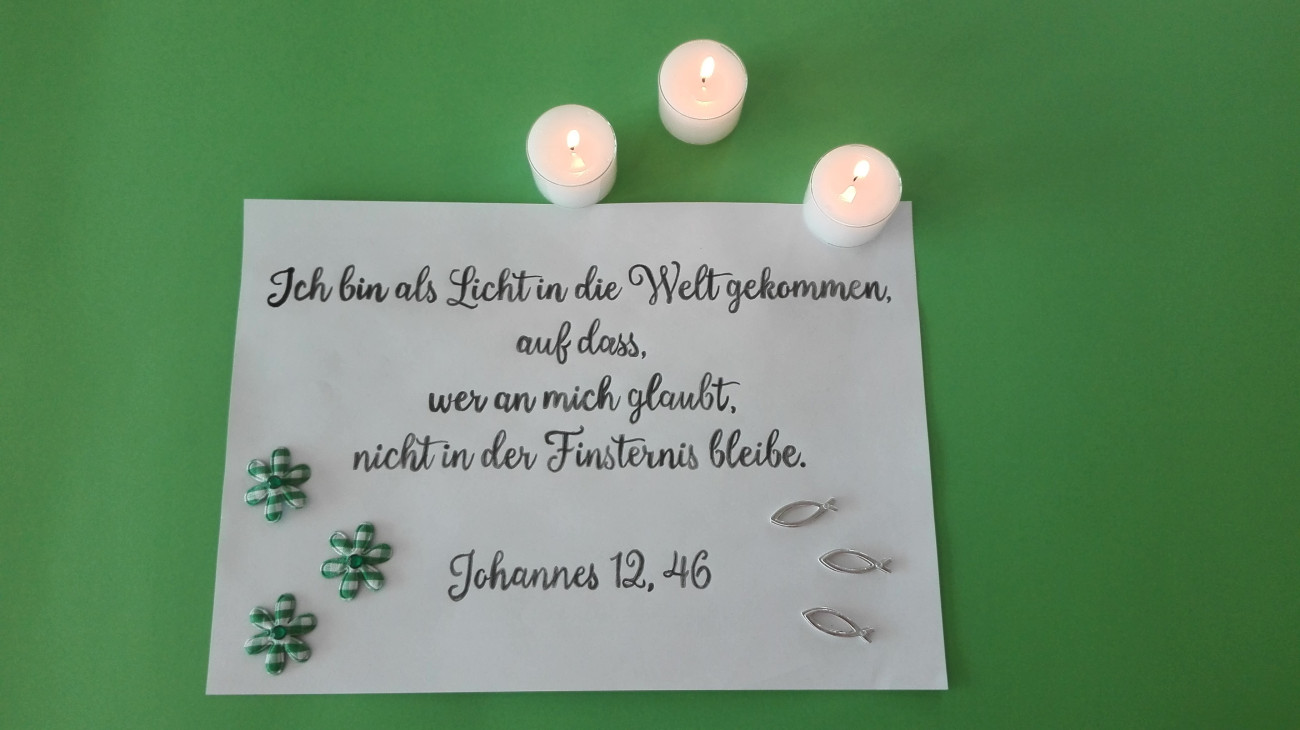 Ich bin als Licht in die Welt gekommen,
auf dass,
wer an mich glaubt,
nicht in der Finsternis bleibe.
Johannes 12, 46